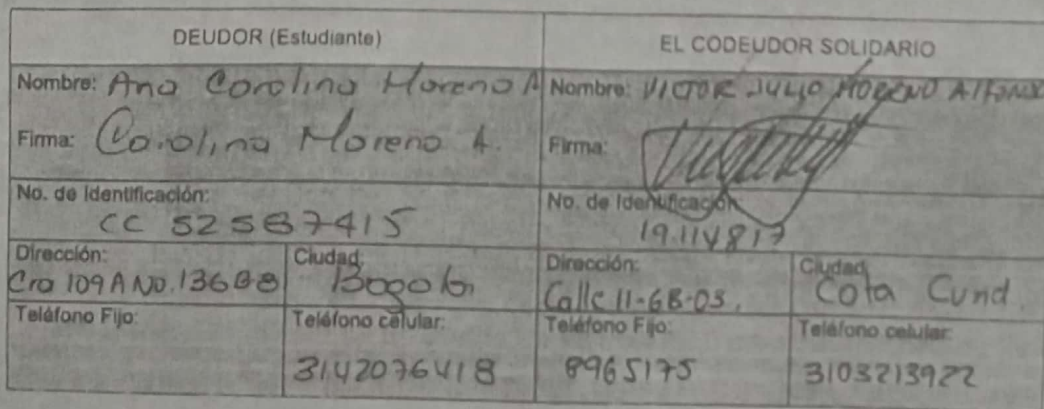 DEUDOR (Estudiante)
EL CODEUDOR SOLIDARIO
Nombre: Ana Carolina Moreno A
Nombre: VICTOR JULIO MORENO Alfonso
Firma: Carolina Moreno A.
Firma:
No. de Identificación:
CC 52587415
No. de Identificación:
19.114817
Dirección:
Cra 109A No. 136B8
Ciudad:
Bogota
Dirección:
Calle 11-6B-03.
Ciudad:
Cota Cund.
Teléfono Fijo:
Teléfono celular:
3142076418
Teléfono Fijo:
8965175
Teléfono celular:
3103213922